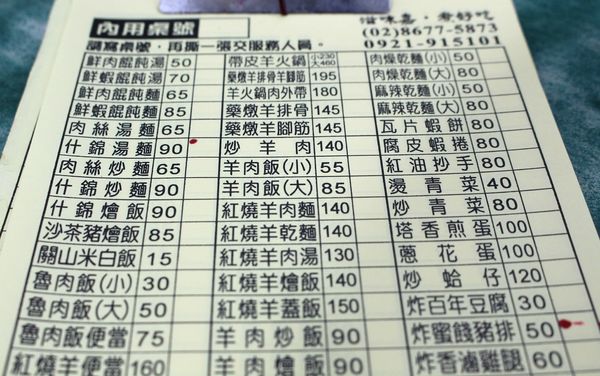 內用桌號
滋味嘉．煮好吃
(02)8677-5873
0921-915101
請寫桌號,再撕一張交服務人員。
鮮肉餛飩湯 50 帶皮羊火鍋 小230 大460 肉燥乾麵(小) 50
鮮蝦餛飩湯 70 藥燉羊排骨羊腳筋 195 肉燥乾麵(大) 80
鮮肉餛飩麵 65 羊火鍋肉外帶 180 麻辣乾麵(小) 50
鮮蝦餛飩麵 85 藥燉羊排骨 145 麻辣乾麵(大) 80
肉絲湯麵 65 藥燉羊腳筋 145 瓦片蝦餅 80
什錦湯麵 90 炒羊肉 140 腐皮蝦捲 90
肉絲炒麵 65 羊肉飯(小) 55 紅油抄手 80
什錦炒麵 90 羊肉飯(大) 85 燙青菜 40
什錦燴飯 90 紅燒羊肉麵 140 炒青菜 80
沙茶豬燴飯 85 紅燒羊乾麵 140 塔香煎蛋 100
關山米白飯 15 紅燒羊肉湯 130 蔥花蛋 100
魯肉飯(小) 30 紅燒羊燴飯 140 炒蛤仔 120
魯肉飯(大) 50 紅燒羊蓋飯 150 炸百年豆腐 30
魯肉飯便當 75 羊肉炒飯 90 炸蜜餞豬排 50
紅燒羊便當 160 羊肉燴飯 90 炸香滷雞腿 60